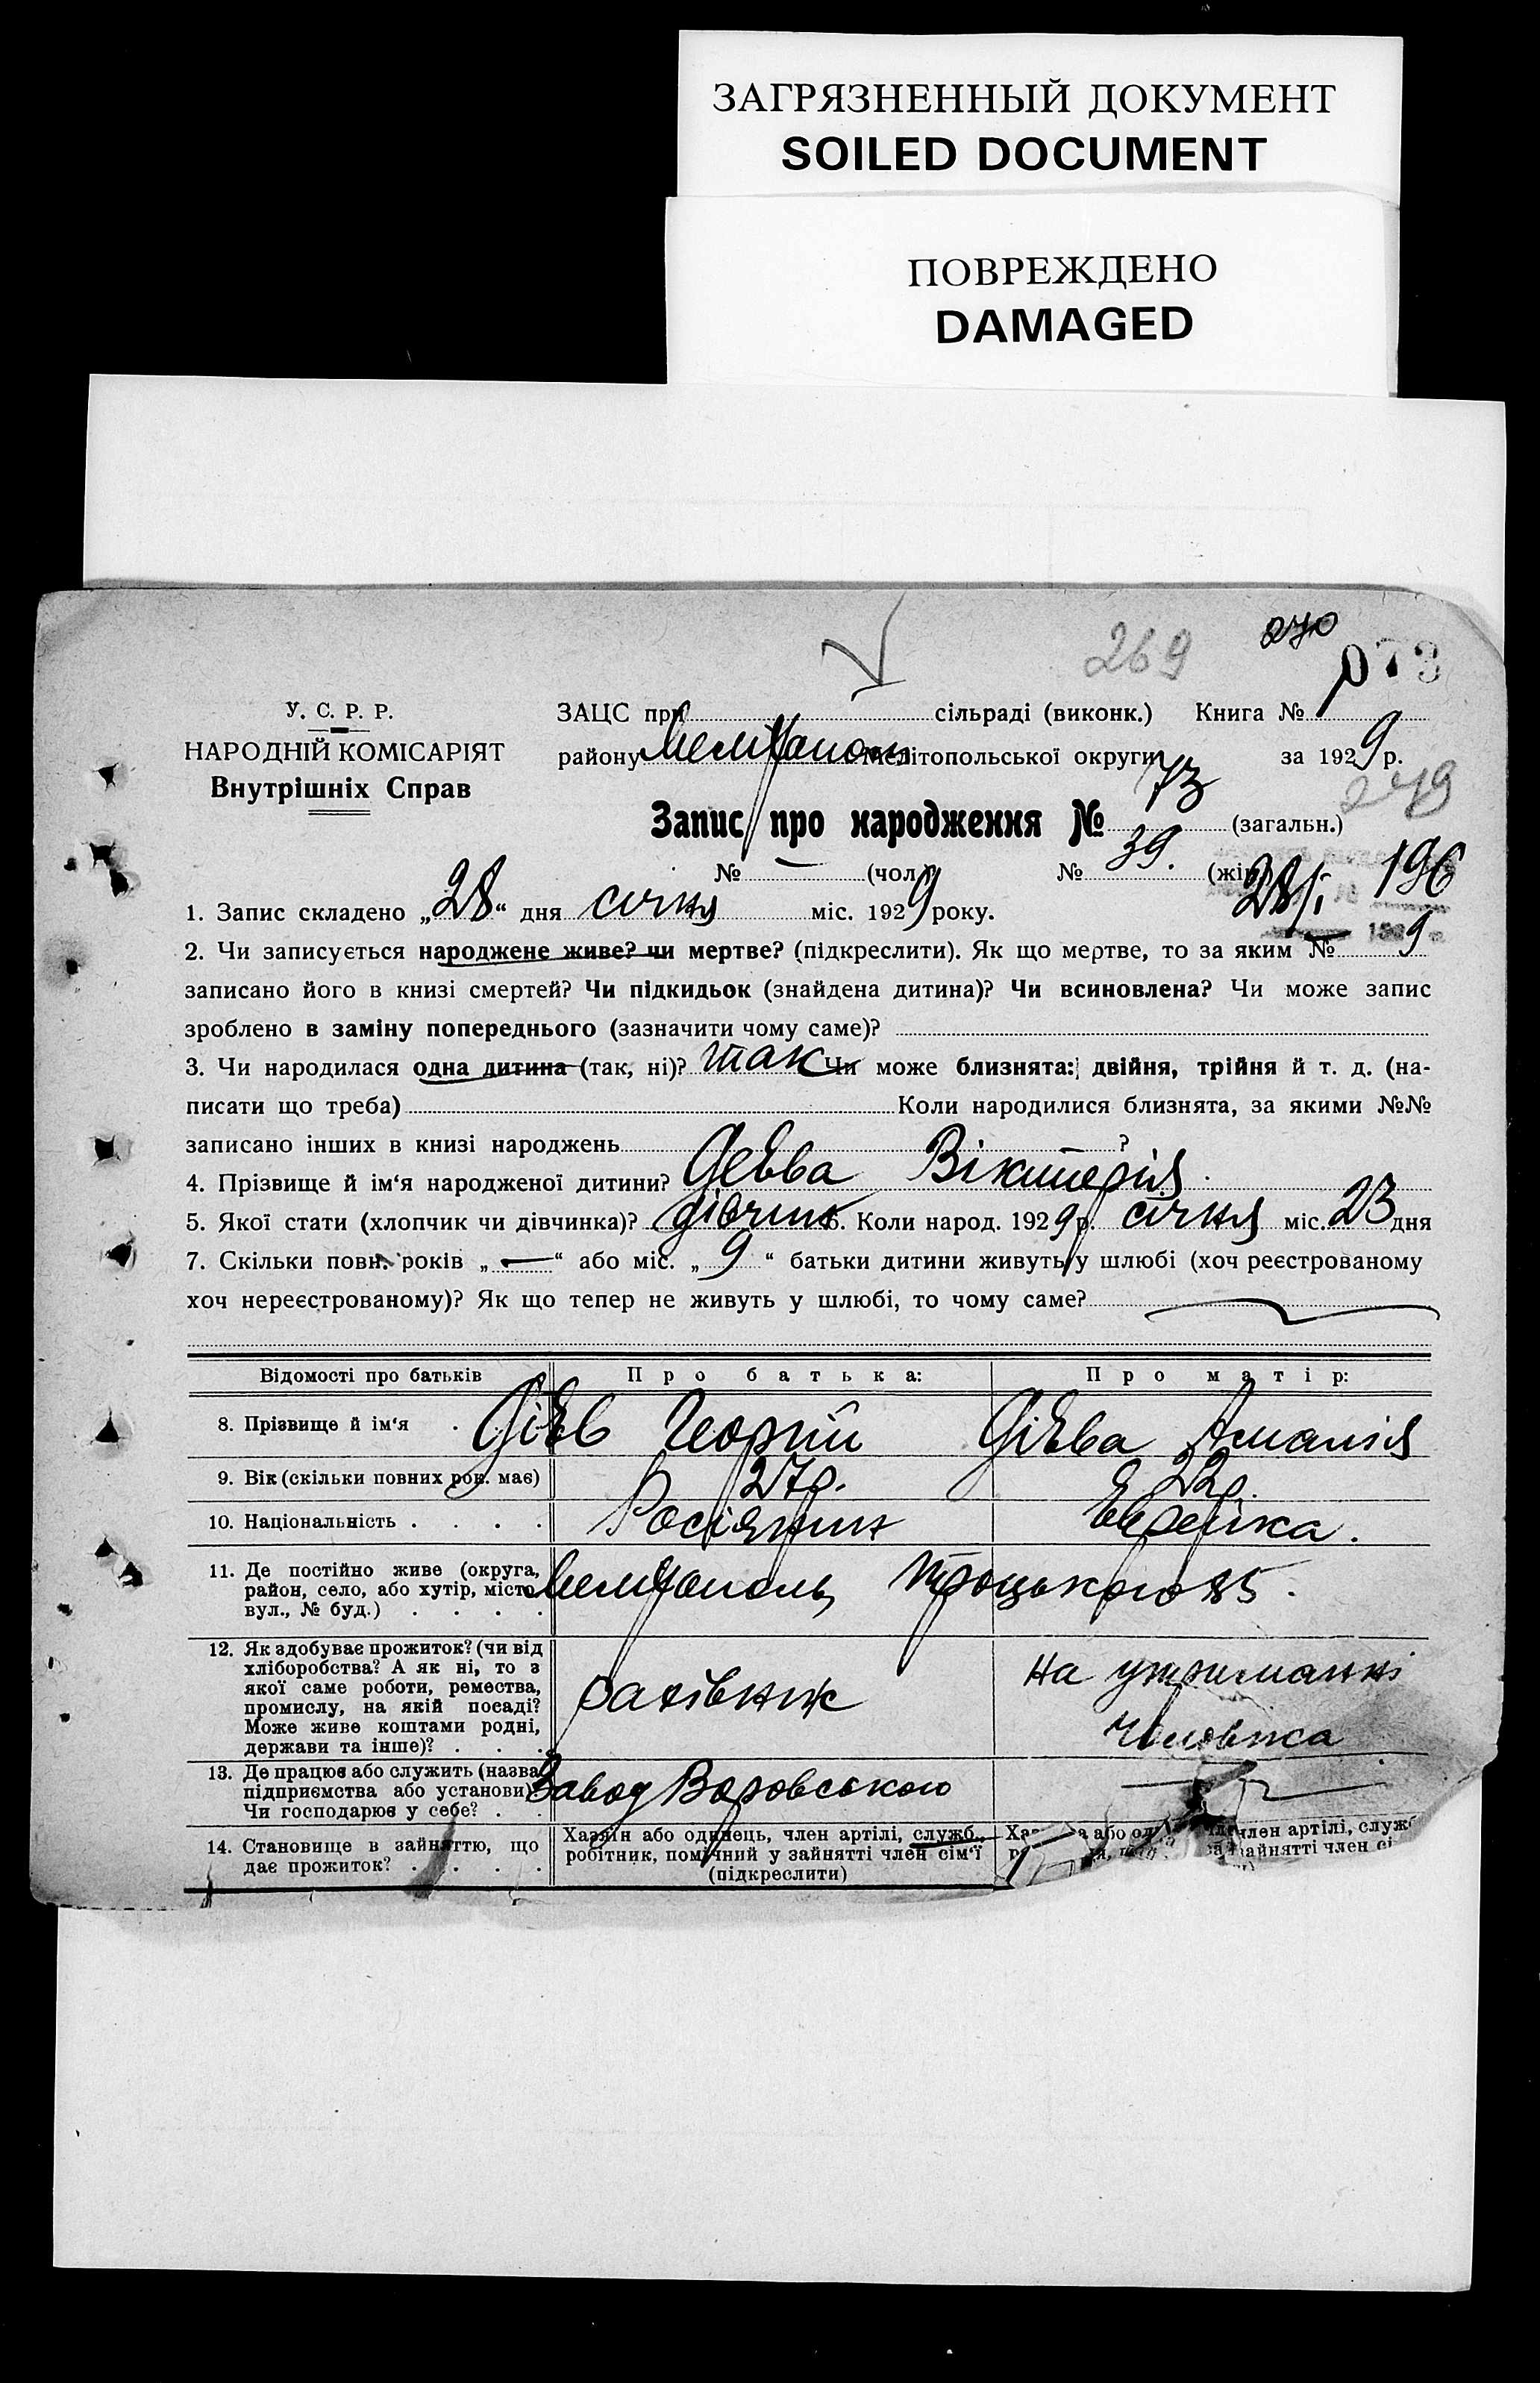 ЗАГРЯЗНЕННЫЙ ДОКУМЕНТ
SOILED DOCUMENT
ПОВРЕЖДЕНО
DAMAGED
269 270
073
У. С. Р. Р.
НАРОДНІЙ КОМІСАРІЯТ
Внутрішніх Справ
ЗАЦС при сільраді (виконк.) Книга № 1
району Мелітополь Мелітопольської округи за 1929 р.
249
Запис про народження № 73 (загальн.)
№ — (чол.) № 39. (жін.)
28/I 196
9
1. Запис складено „28“ дня січня міс. 1929 року.
2. Чи записується народжене живе? чи мертве? (підкреслити). Як що мертве, то за яким №
записано його в книзі смертей? Чи підкидьок (знайдена дитина)? Чи всиновлена? Чи може запис
зроблено в заміну попереднього (зазначити чому саме)?
3. Чи народилася одна дитина (так, ні)? так Чи може близнята: двійня, трійня й т. д. (на-
писати що треба) Коли народилися близнята, за якими №№
записано інших в книзі народжень ?
4. Прізвище й ім‘я народженої дитини? Деєва Вікторія
5. Якої стати (хлопчик чи дівчинка)? дівчина 6. Коли народ. 1929 р. січня міс. 23 дня
7. Скільки повн. років „—“ або міс. „9“ батьки дитини живуть у шлюбі (хоч реєстрованому
хоч нереєстрованому)? Як що тепер не живуть у шлюбі, то чому саме?
Відомості про батьків Про батька: Про матір:
8. Прізвище й ім‘я Дієв Георгій Дієва Амалія
9. Вік (скільки повних рок. має) 27р. 22р.
10. Національність Росіянин Єврейка.
11. Де постійно живе (округа,
район, село, або хутір, місто,
вул., № буд.) Мелітополь, Троцького 85.
12. Як здобуває прожиток? (чи від
хліборобства? А як ні, то з
якої саме роботи, ремества,
промислу, на якій посаді?
Може живе коштами родні,
держави та інше)?
рахівник
на утриманні
чоловіка
13. Де працює або служить (назва
підприємства або установи)?
Чи господарює у себе?
Завод Воровського —
14. Становище в зайняттю, що
дає прожиток?
Хазяїн або одинець, член артілі, служб.,
робітник, помічний у зайнятті член сім‘ї
(підкреслити)
або член артілі, служб
зайнятті член сі